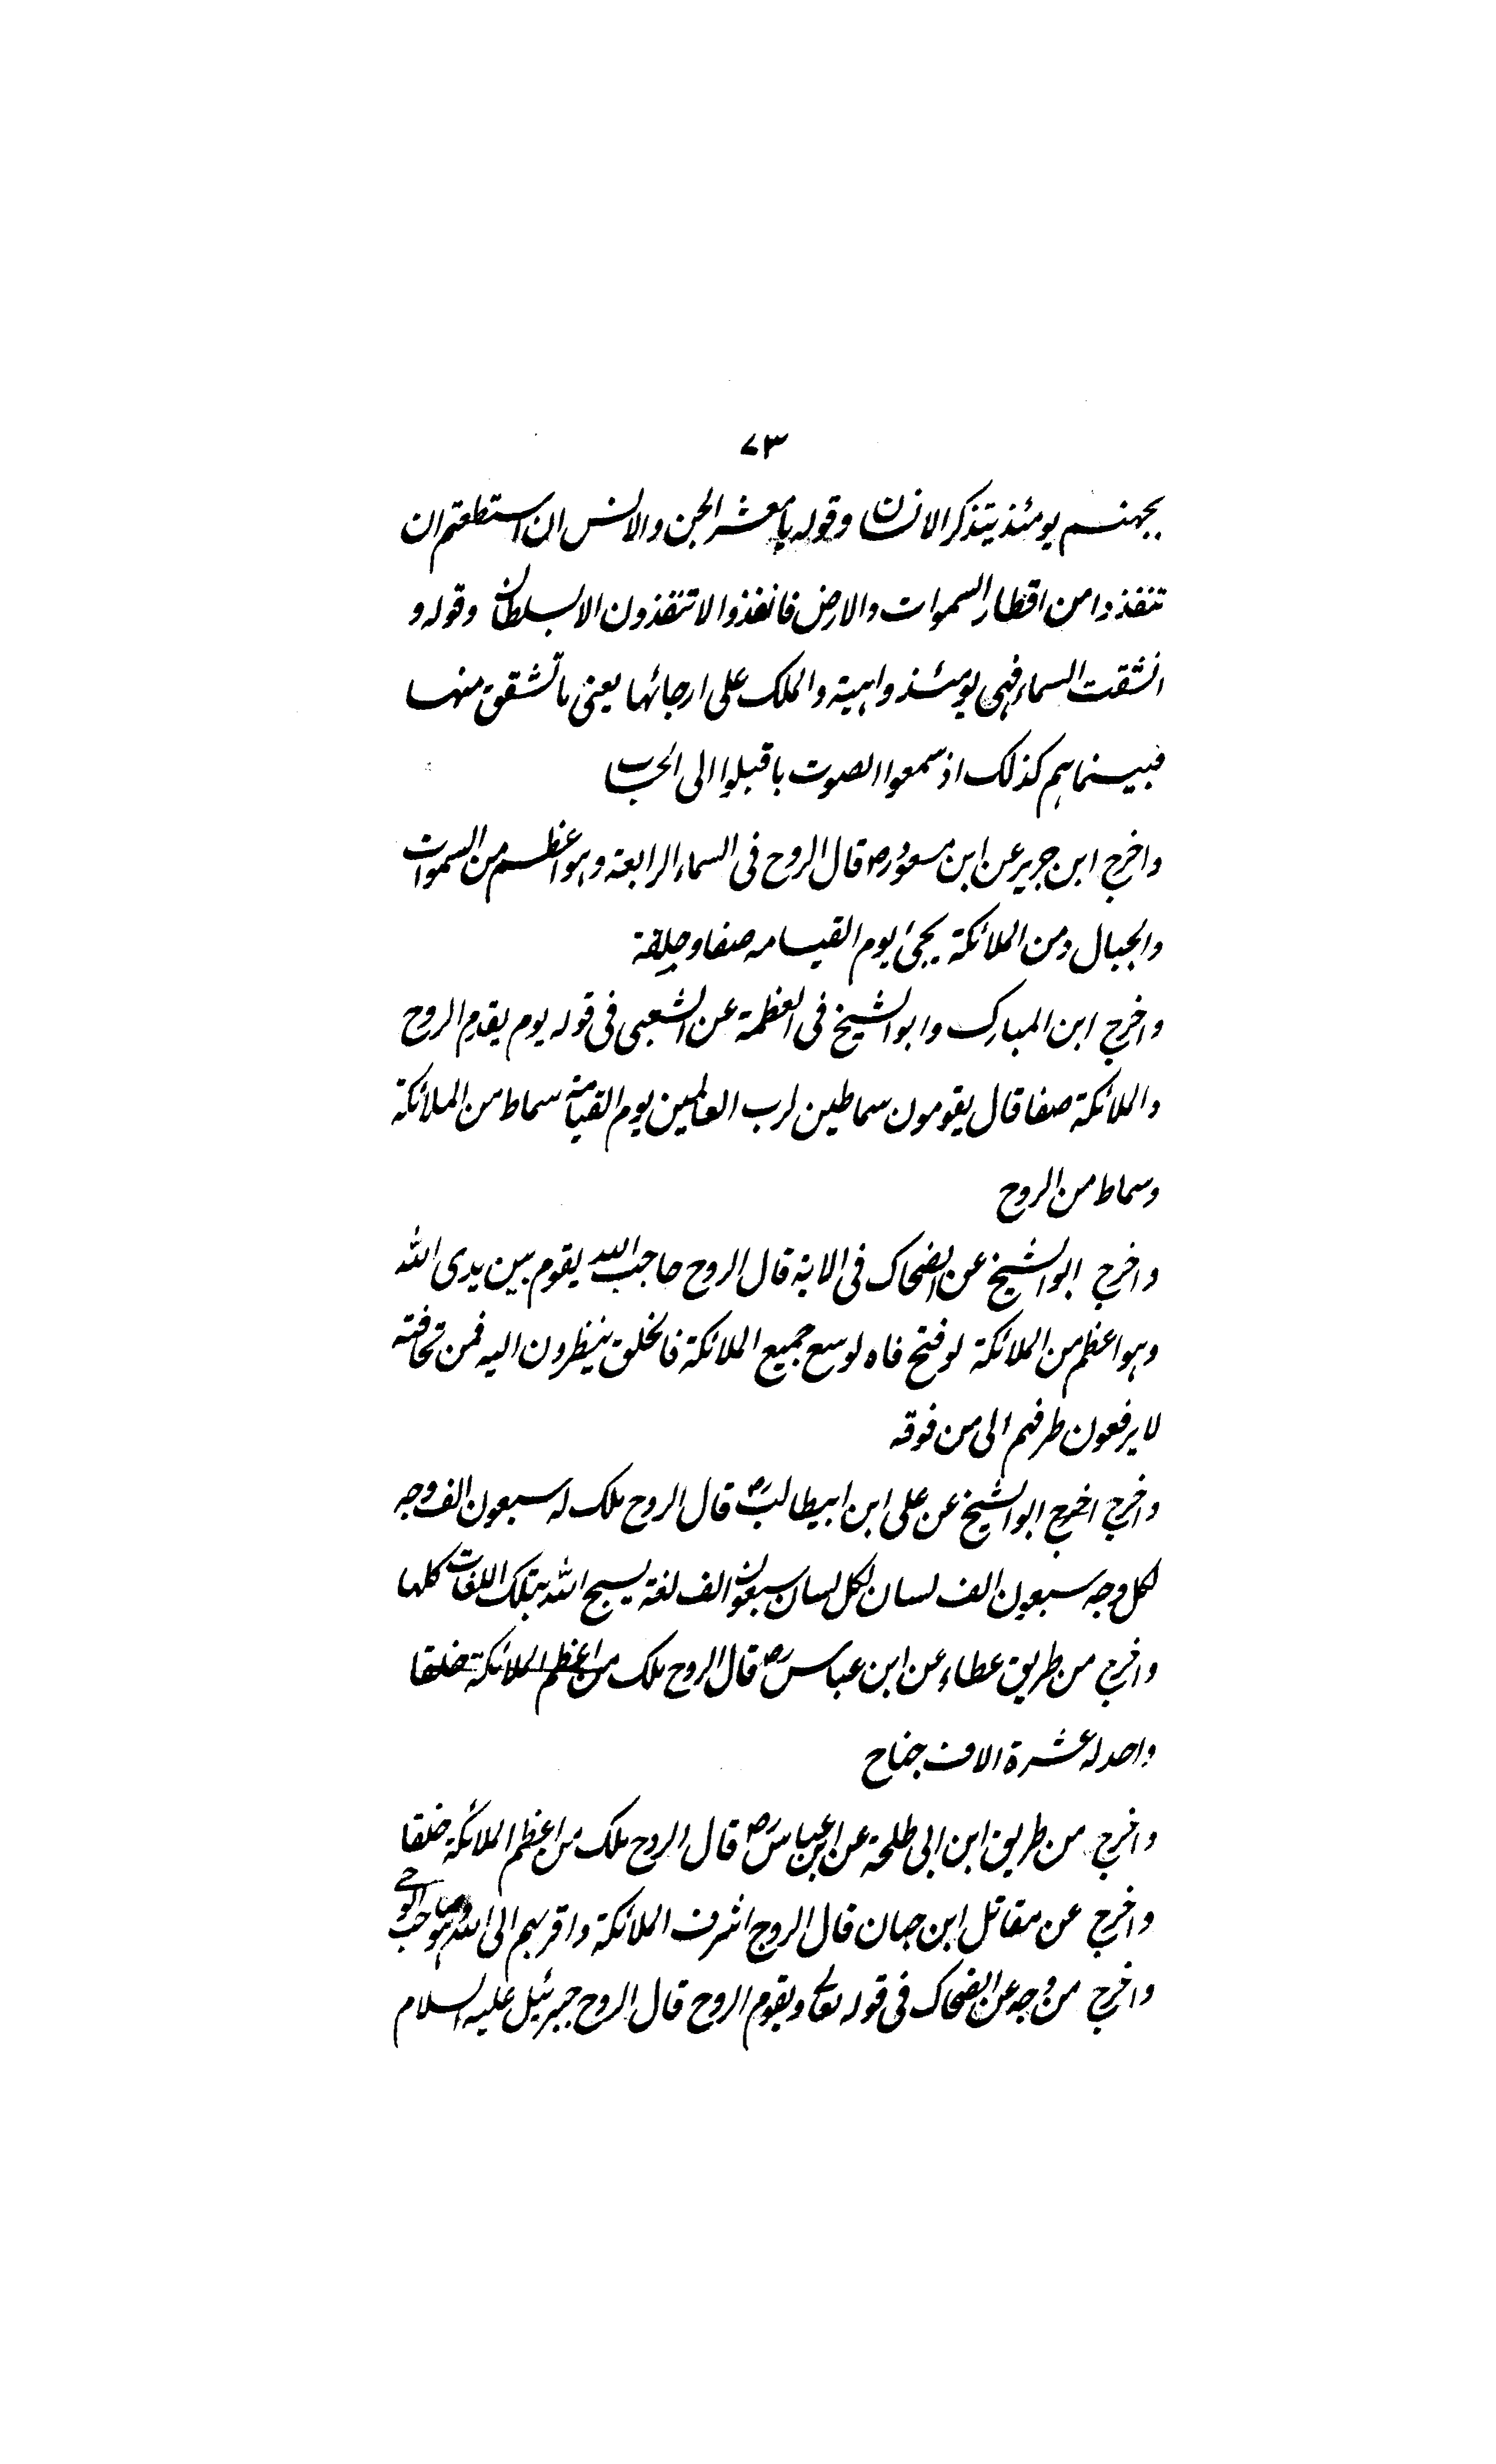 ٧٣
بجهنم يومئذ يتذكر الانسان وقوله يا معشر الجن والانس ان استطعتم ان
تنفذوا من اقطار السموات والارض فانفذوا لا تنفذون الا بسلطان وقوله و
انشقت السماء فهى يومئذ واهية والملك على ارجائها يعنى ما تشقق منها
فبينما هم كذلك اذ سمعوا الصوت باقبلوا الى الحساب
واخرج ابن جرير عن ابن مسعودرض قال الروح فى السماء الرابعة وهو اعظم من السموات
والجبال ومن الملائكة يجئ يوم القيامه صفا وحلقة
واخرج ابن المبارك وابو الشيخ فى العظمة عن الشعبى فى قوله يوم يقوم الروح
والملائكة صفا قال يقومون سماطين لرب العالمين يوم القيامة سماط من الملائكة
وسماط من الروح
واخرج ابو الشيخ عن الضحاك فى الاية قال الروح حاجب الله يقوم بين يدى الله
وهو اعظم من الملائكة لو فتح فاه لوسع جميع الملائكة فالخلق ينظرون اليه فمن مخافته
لا يرفعون طرفهم الى من فوقه
واخرج اخرج ابو الشيخ عن على ابن ابيطالبرض قال الروح ملك له سبعون الف وجه
لكل وجه سبعون الف لسان لكل لسان سبعون الف لغة يسبح الله بتلك اللغات كلها
واخرج من طريق عطاء عن ابن عباسرض قال الروح ملك من اعظم الملائكة خلقا
واحد له عشرة الاف جناح
واخرج من طريق ابن ابى طلحة عن ابن عباسرض قال الروح ملك من اعظم الملائكة خلقا
واخرج عن مقاتل ابن حبان قال الروح اشرف الملائكة واقربهم الى الله وهو صاحب الوحى
واخرج من وجه عن الضحاك فى قوله تعالى ويقوم الروح قال الروح جبرئيل عليه السلام